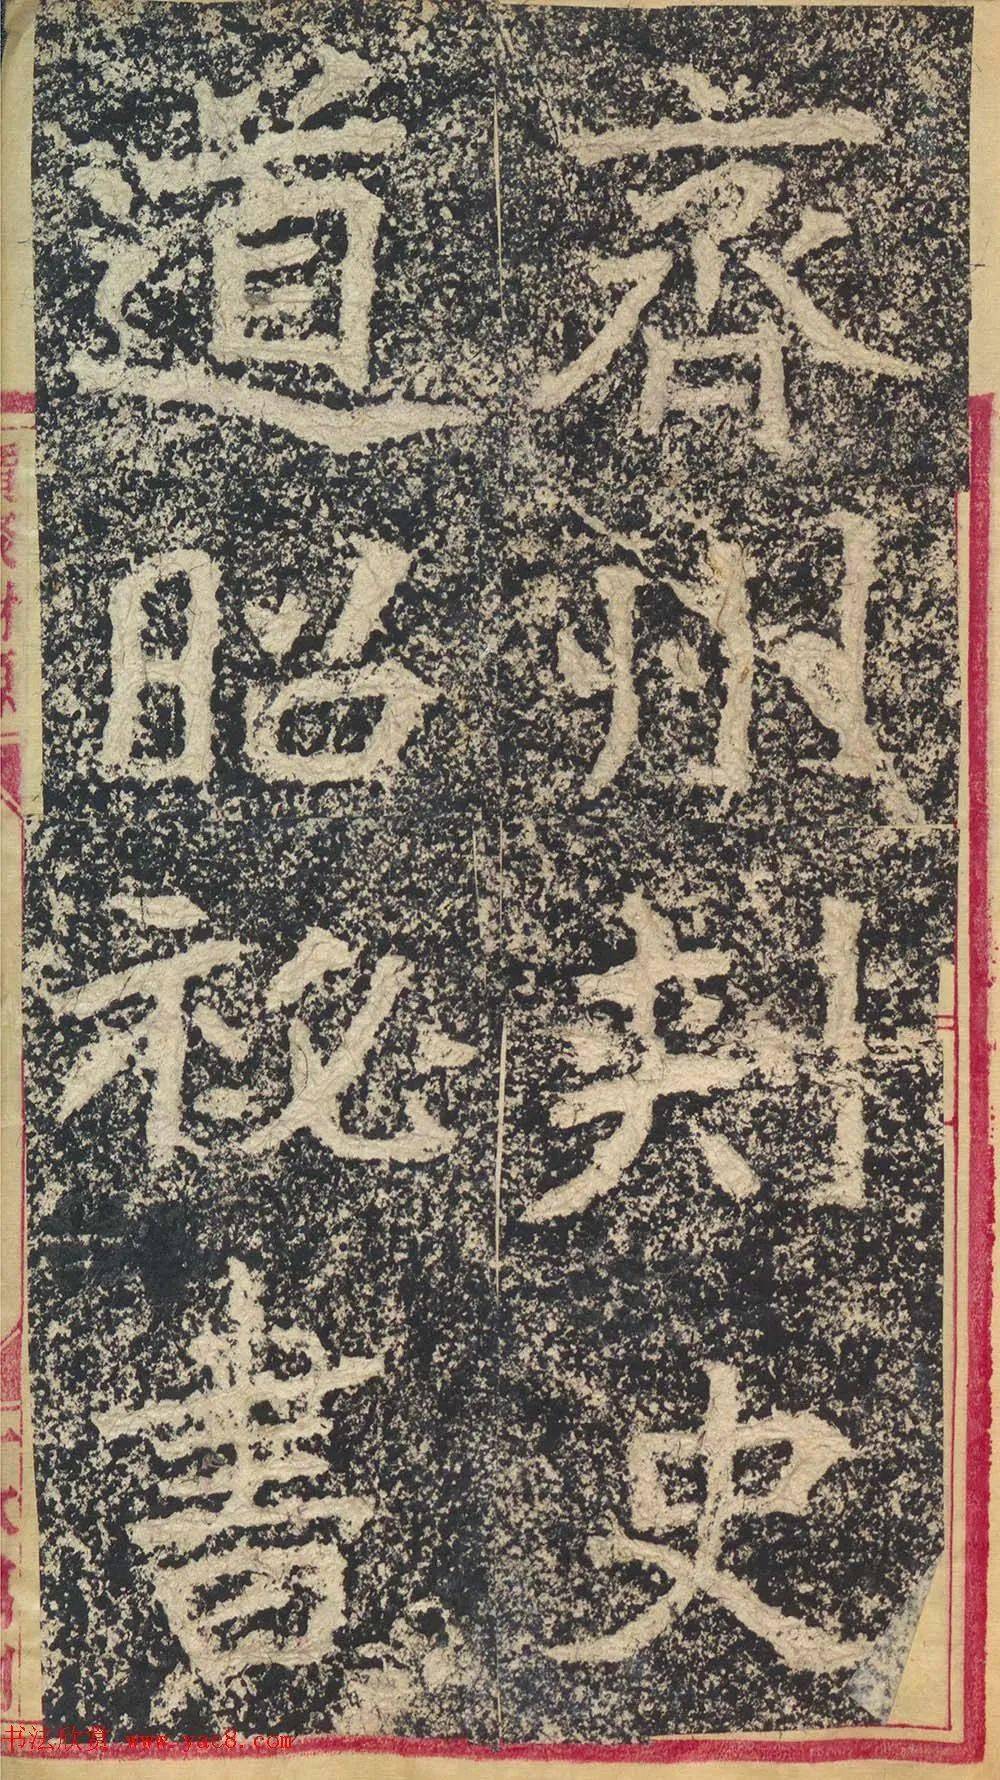 齐州刺史
道昭秘書
书法欣赏 www.yac8.com